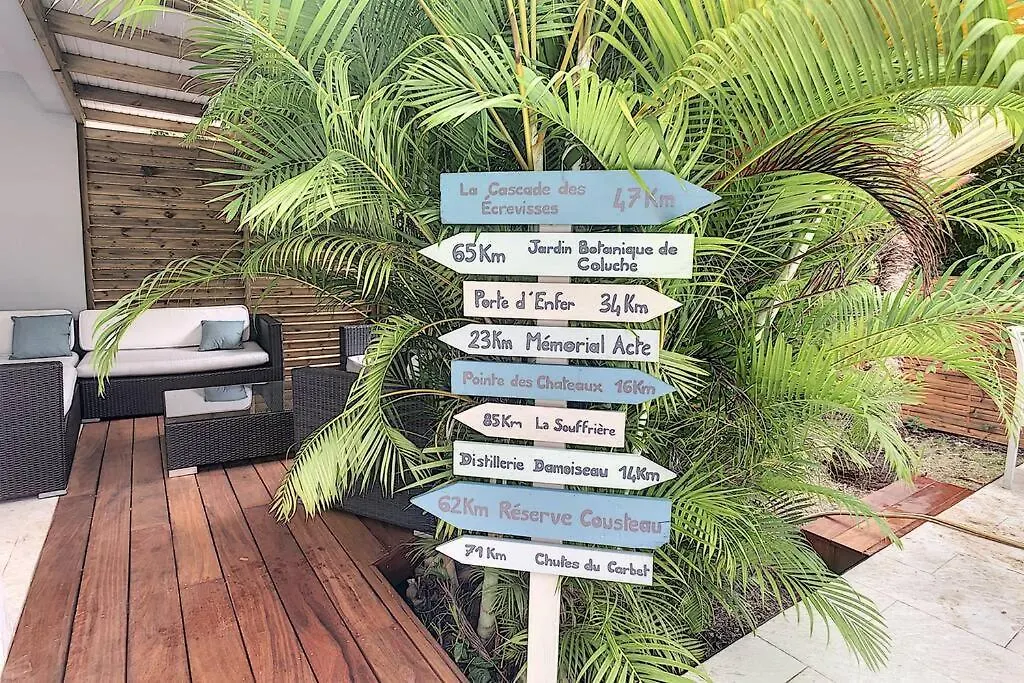 La Cascade des
Écrevisses 47Km
65Km Jardin Botanique de
Coluche
Porte d'Enfer 34Km
23Km Mémorial Acte
Pointe des Chateaux 16Km
85Km La Souffrière
Distillerie Damoiseau 14Km
62Km Réserve Cousteau
71Km Chutes du Carbet